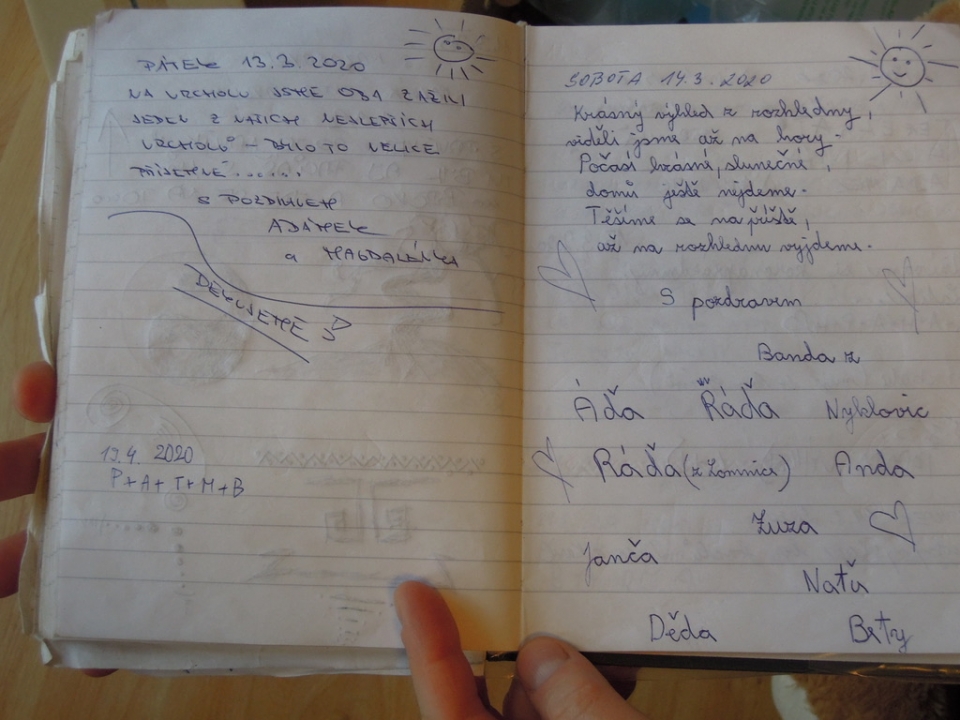 PÁTEK 13.3.2020
NA VRCHOLU JSME OBA ZAŽILI
JEDEN Z NAŠICH NEJLEPŠÍCH
VRCHOLŮ - BYLO TO VELICE
PŘÍJEMNÉ......
S POZDRAVEM
ADÁMEK
a MAGDALÉNKA
DĚKUJEME
13.4. 2020
P+A+T+M+B
SOBOTA 14.3.2020
Krásný výhled z rozhledny,
viděli jsme až na hory.
Počasí krásné, slunečné,
domů ještě nejdeme.
Těšíme se na příště,
až na rozhlednu vyjdeme.
S pozdravem
Banda z
Áďa Řáďa Nyklovic
Ráďa (z Lomnice) Anda
Zuza
Janča
Naťu
Děda Brťy